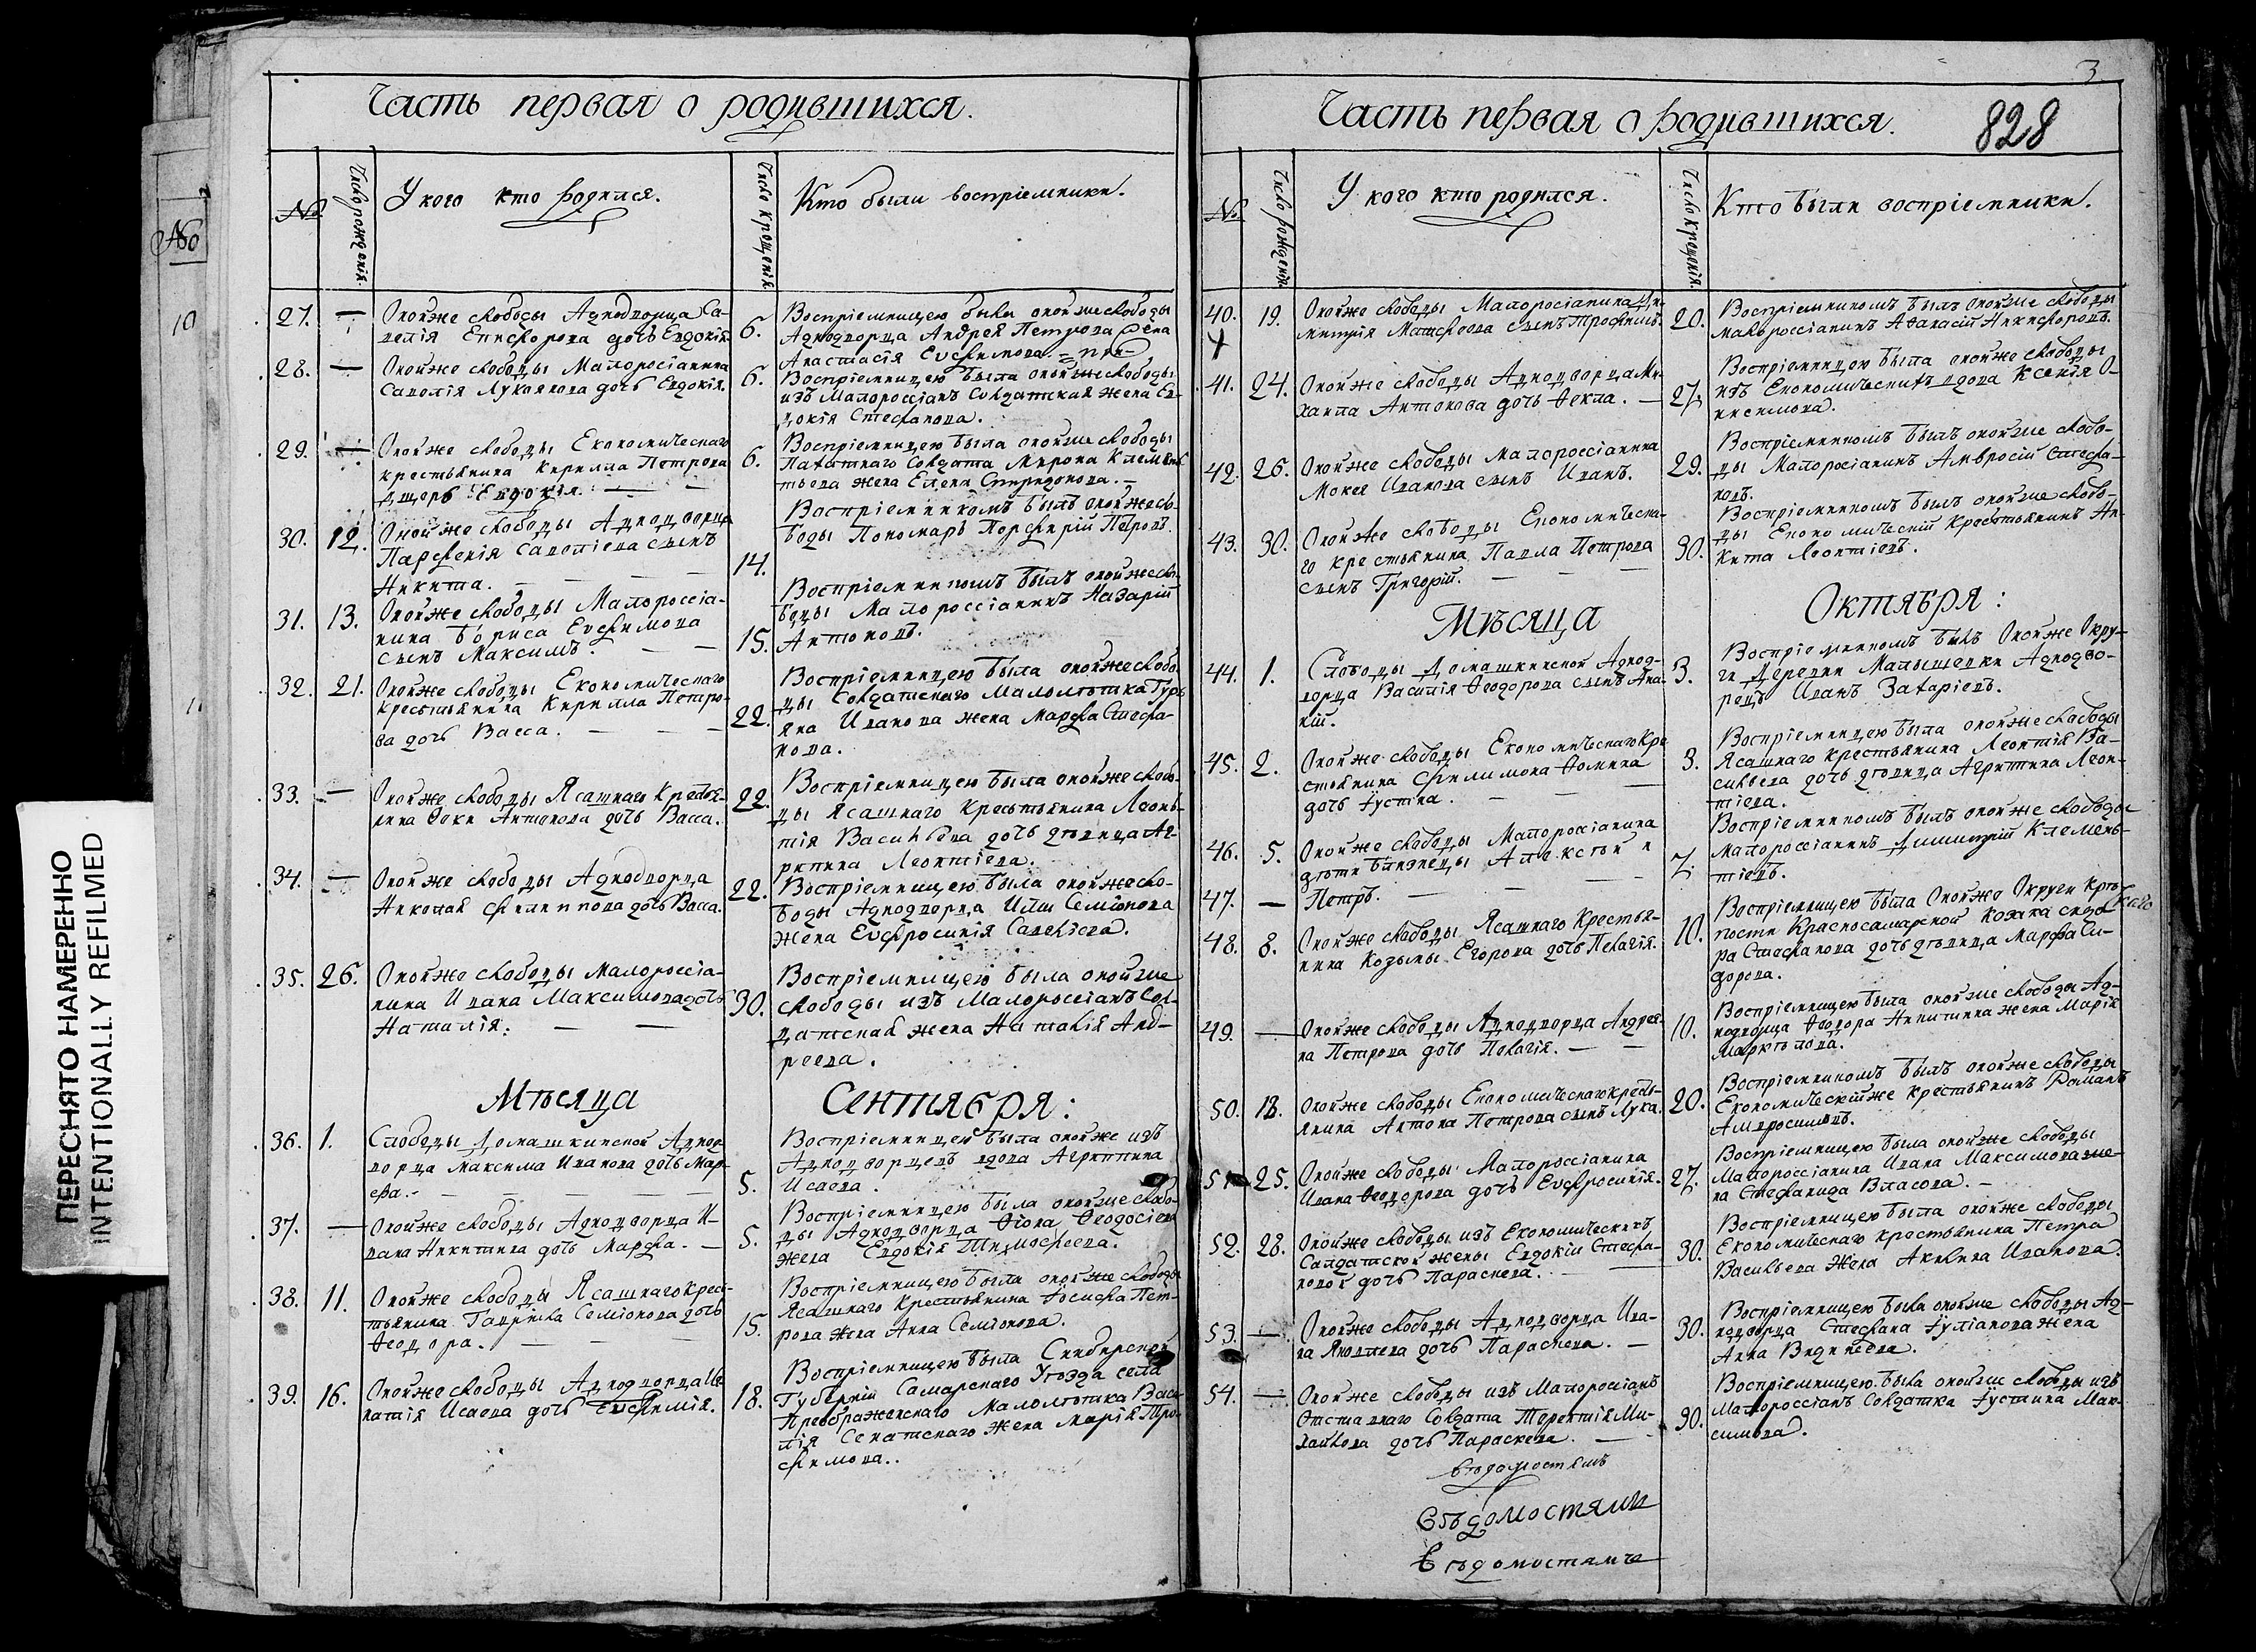 Часть первая о родившихся.
№
Число рожденія
У кого кто родился.
Число крещенія
Кто были воспріемники.
27. — Онойже слободы Аднодворца Са-
велія Епифорова дочь Евдокія.
6. Воспріемницею была онойже слободы
Аднодворца Андрея Петрова жена
Анастасія Евфимова.
28. — Онойже слободы Малоросіанина
Савелія Лукоянова дочь Евдокія.
6. Воспріемницею была онойже слободы
изъ Малороссіанъ Солдатская жена Ев-
докія Стефанова.
29. — Онойже слободы Економическаго
крестьянина Кирилла Петрова
дщерь Евдокія.
6. Воспріемницею была онойже слободы
Солдата Мирона Клемень-
тьева жена Елена Спиридонова.
30. 12. Онойже слободы Аднодворца
Парфенія Савеліева сынъ
Никита.
14. Воспріемникомъ былъ онойже сло-
боды Пономарь Порфирій Петровъ.
31. 13. Онойже слободы Малороссіа-
нина Бориса Евфимова
сынъ Максимъ.
15. Воспріемникомъ былъ онойже сло-
боды Малороссіанинъ Назарій
Антоновъ.
32. 21. Онойже слободы Економическаго
крестьянина Кирилла Петро-
ва дочь Васса.
22. Воспріемницею была онойже слобо-
ды Солдатскаго Малолѣтка Гурь
яна Иванова жена Марфа Стефа-
нова.
33. — Онойже слободы Ясашнаго крестья-
нина Фоки Антонова дочь Васса.
22. Воспріемницею была онойже слобо-
ды Ясашнаго крестьянина Леонь-
тія Васильева дочь дѣвица Аг-
рипина Леонтіева.
34. — Онойже слободы Аднодворца
Николая Филиппова дочь Васса.
22. Воспріемницею была онойже сло-
боды Аднодворца Иліи Семіонова
жена Евфросинія Савельева.
35. 26. Онойже слободы Малороссіа-
нина Ивана Максимова дочь
Наталія.
30. Воспріемницею была онойже
слободы изъ Малороссіанъ Сол-
датская жена Наталія Анд-
реева.
Мѣсяца Сентября:
36. 1. Слободы Домашкинской Аднод-
ворца Максима Иванова дочь Мар-
фа.
5. Воспріемницею была онойже изъ
Аднодворцевъ вдова Агрипина
Исаева.
37. — Онойже слободы Аднодворца И-
вана Никитина дочь Марфа.
5. Воспріемницею была онойже слобо-
ды Аднодворца Фіона Феодосіева
жена Евдокія Тимофеева.
38. 11. Онойже слободы Ясашнаго Крес-
тьянина Гаврила Семіонова дочь
Феодора.
15. Воспріемницею была онойже слободы
Ясашнаго Крестьянина Іосифа Пет-
рова жена Анна Семіонова.
39. 16. Онойже слободы Аднодворца Иг-
натія Исаева дочь Евфимія.
18. Воспріемницею была Синбирской
Губерніи Самарскаго Уѣзда села
Преображенскаго Малолѣтка Васи-
лія Сенатскаго жена Марія Тро-
фимова.
3
Часть первая о родившихся.
828
№
Число рожденія
У кого кто родился.
Число крещенія
Кто были воспріемники.
40. 19. Онойже слободы Малоросіанина Ди-
митрія Матфеева сынъ Трофимъ.
20. Воспріемникомъ былъ онойже слободы
малороссіанинъ Афанасій Никифоровъ.
41. 24. Онойже слободы Аднодворца Ми-
хаила Антонова дочь Фекла.
27. Воспріемницею была онойже слободы
изъ Економическихъ вдова Ксенія О-
нисимова.
42. 26. Онойже слободы малороссіанина
Мокея Иванова сынъ Иванъ.
29. Воспріемникомъ былъ онойже слобо-
ды Малоросіанинъ Амвросій Стефа-
новъ.
43. 30. Онойже слободы Економическа-
го крестьянина Павла Петрова
сынъ Григорій.
30. Воспріемникомъ былъ онойже слобо-
ды Економическій крестьянинъ Ни-
кита Леонтіевъ.
Мѣсяца Октября:
44. 1. Слободы Домашкинской Аднод-
ворца Василія Феодорова сынъ Ана-
ній.
3. Воспріемникомъ былъ Онойже Окру-
ги Деревни Малышевки Аднодво-
рецъ Иванъ Захаріевъ.
45. 2. Онойже слободы Економическаго Кре
стьянина Филимона Фомина
дочь Іустина.
3. Воспріемницею была онойже слободы
Ясашнаго крестьянина Леонтія Ва-
сильева дочь дѣвица Агрипина Леон-
тіева.
46. 5. Онойже слободы Малороссіанина
дѣти близнецы Алексѣй и
47. — Петръ.
7. Воспріемникомъ былъ онойже слободы
малороссіанинъ Димитрій Клемень-
тіевъ.
48. 8. Онойже слободы Ясашнаго Крестья-
нина Козьмы Егорова дочь Пелагія.
10. Воспріемницею была Онойже Округи Крѣ-
пости Красносамарской козака Сидо-
ра Стефанова дочь дѣвица Марфа Си-
дорова.
49. — Онойже слободы Аднодворца Андрея-
на Петрова дочь Пелагія.
10. Воспріемницею была онойже слободы Ад-
нодворца Феодора Никитина жена Марія
Маркѣлова.
50. 18. Онойже слободы Економическаго кресть-
янина Антона Петрова сынъ Лука.
20. Воспріемникомъ былъ онойже слободы
Економическійже крестьянинъ Романъ
Амвросимовъ.
51. 25. Онойже слободы Малороссіанина
Ивана Феодорова дочь Евфросинія.
27. Воспріемницею была онойже слободы
Малороссіанина Ивана Максимова же-
на Стефанида Власова.
52. 28. Онойже слободы изъ Економическихъ
Салдатской жены Евдокіи Стефа-
новой дочь Параскева.
30. Воспріемницею была онойже слободы
Економическаго крестьянина Петра
Васильева жена Акилина Иванова.
53. — Онойже слободы Аднодворца Ива-
на Яковлева дочь Параскева.
30. Воспріемницею была онойже слободы Ад-
нодворца Стефана Іуліанова жена
Анна
54. — Онойже слободы изъ Малороссіанъ
Отставнаго Солдата Терентія Ми-
хайлова дочь Параскева.
30. Воспріемницею была онойже слободы изъ
Малороссіанъ Солдатка Іустина Мак-
симова.
вѣдомостямъ
Вѣдомостями
Вѣдомостями
№
10
ПЕРЕСНЯТО НАМЕРЕННО
INTENTIONALLY REFILMED